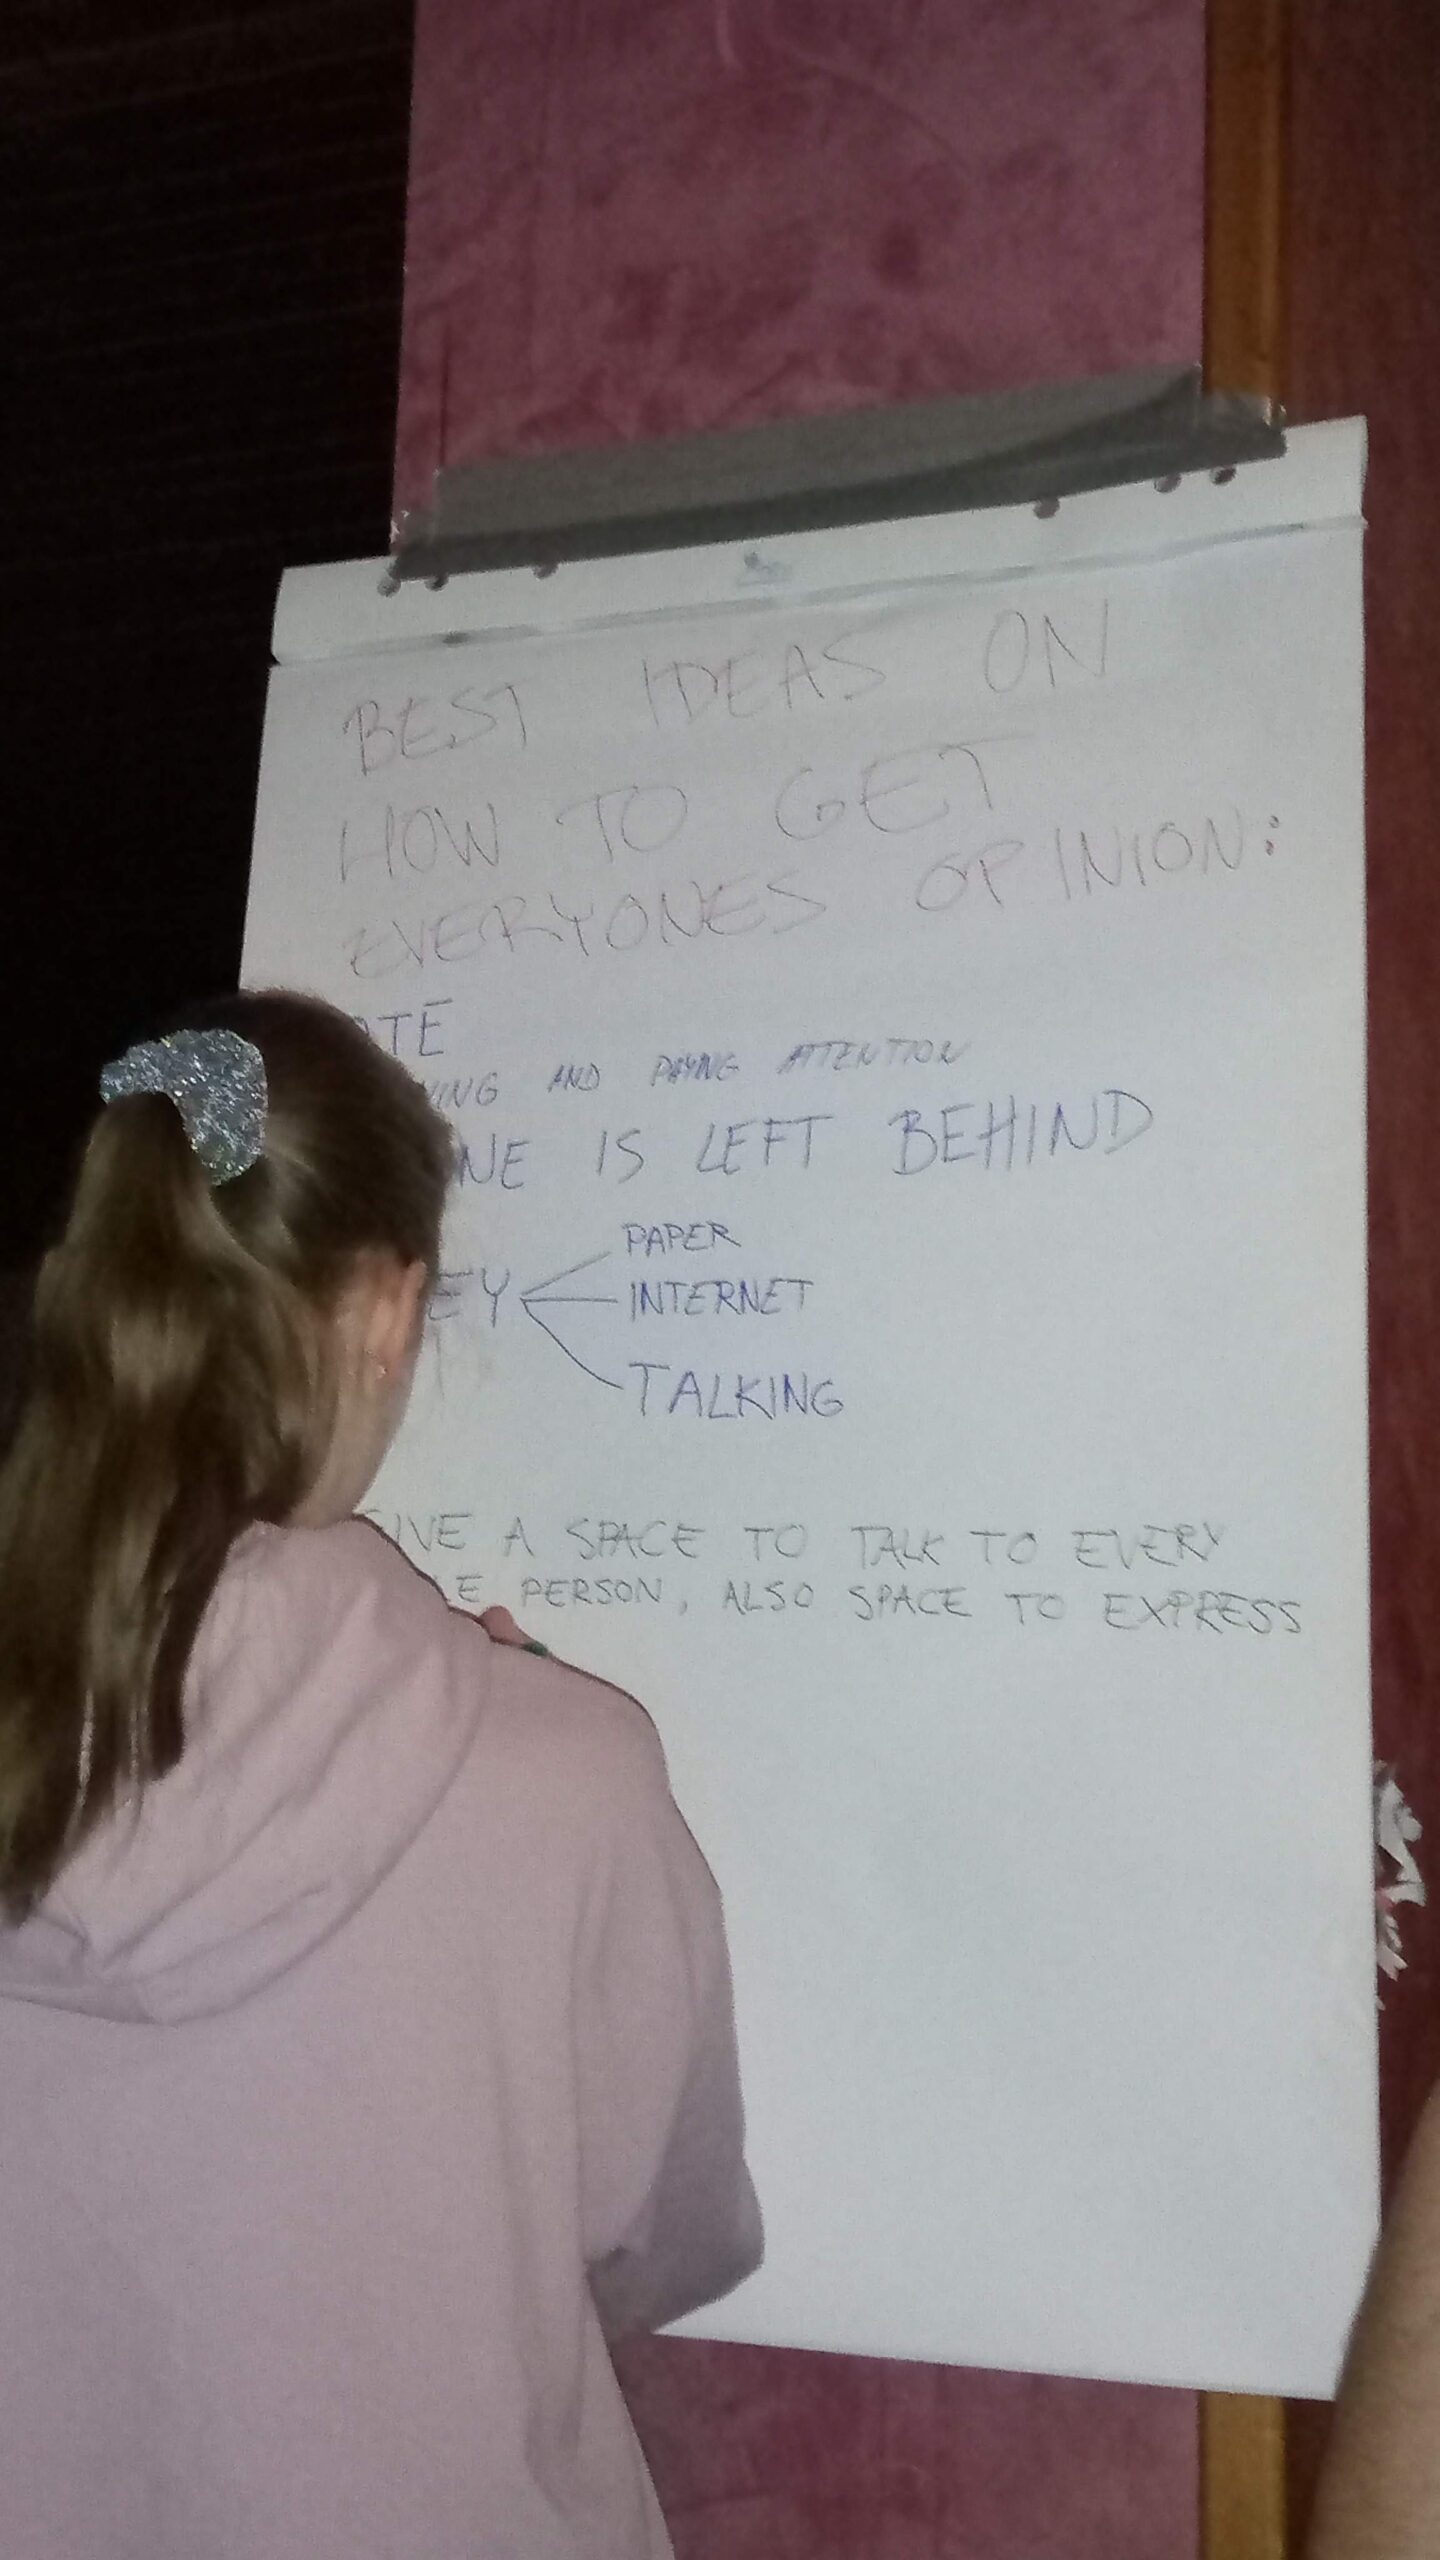 BEST IDEAS ON
HOW TO GET
EVERYONES OPINION:
AND PAYING ATTENTION
IS LEFT BEHIND
PAPER
INTERNET
TALKING
GIVE A SPACE TO TALK TO EVERY
PERSON, ALSO SPACE TO EXPRESS